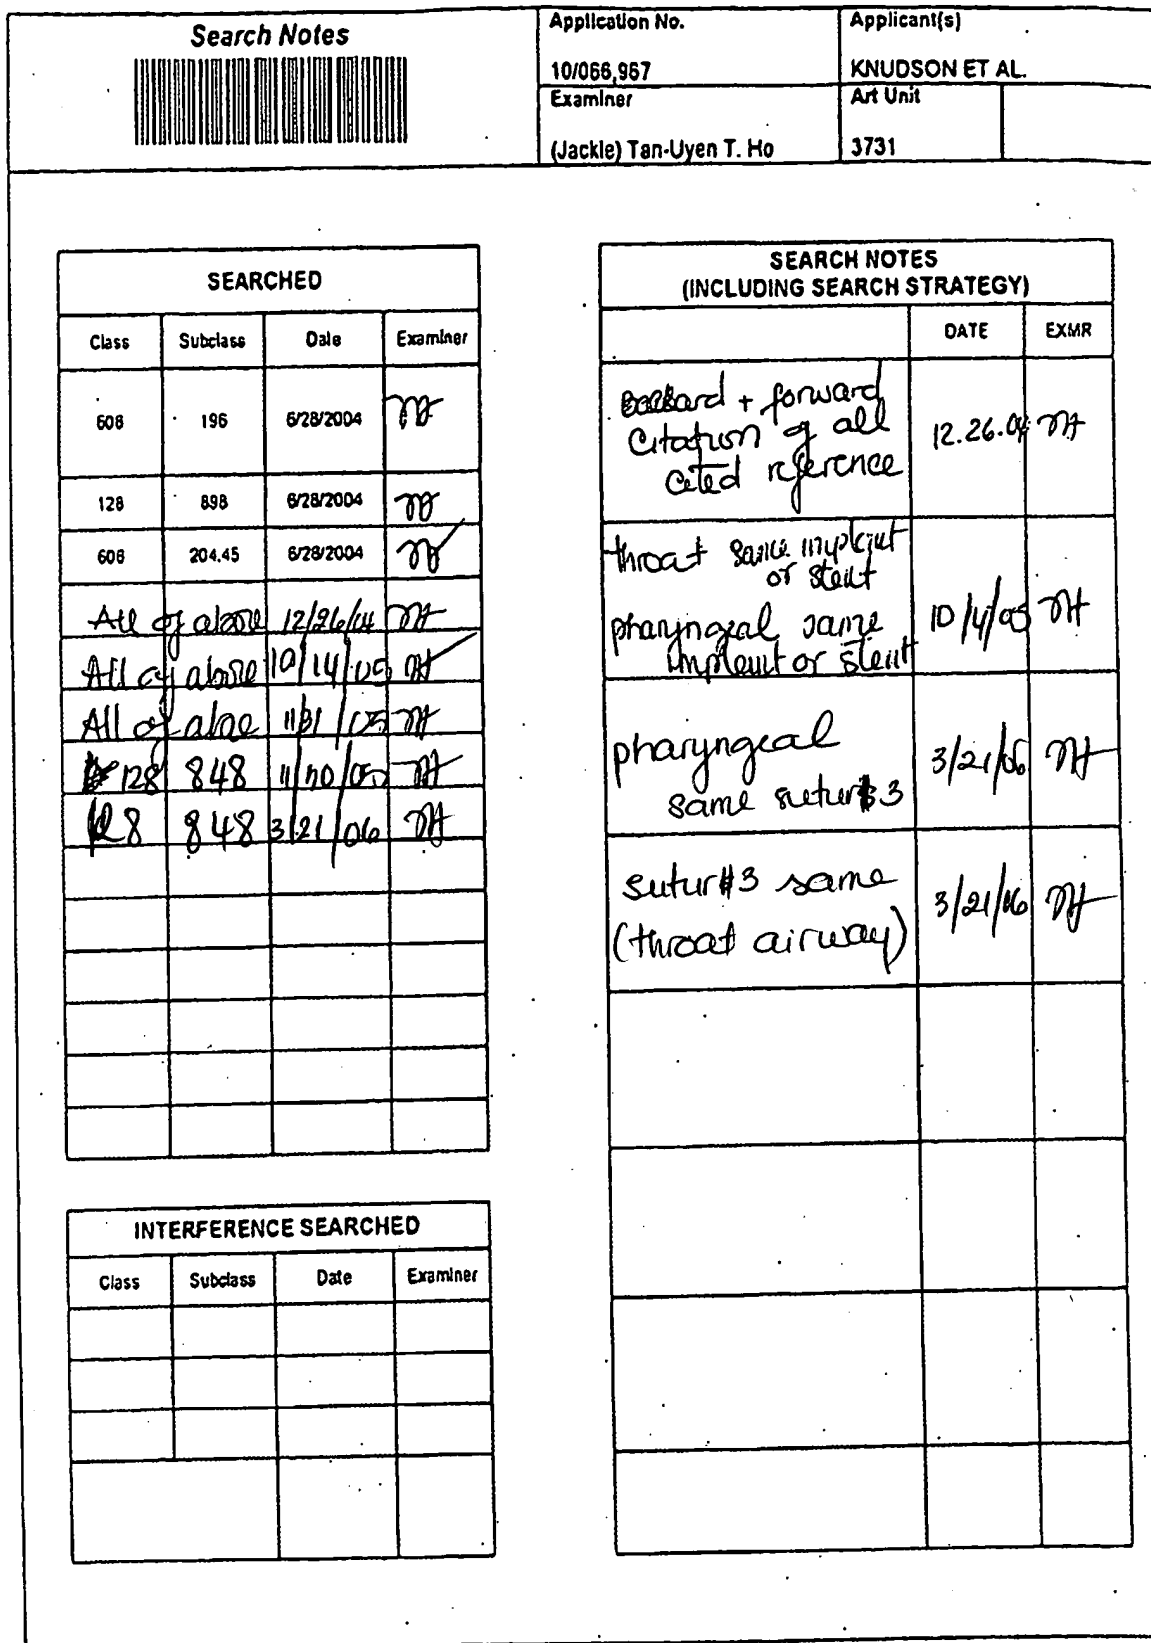 Search Notes
Application No.
10/066,967
Applicant(s)
KNUDSON ET AL.
Examiner
(Jackie) Tan-Uyen T. Ho
Art Unit
3731
SEARCHED
Class Subclass Date Examiner
606 196 6/28/2004
128 898 6/28/2004
606 204.45 6/28/2004
All of above 12/26/04
All of above 10/14/05
All of above
128 848
128 848 3/21/06
INTERFERENCE SEARCHED
Class Subclass Date Examiner
SEARCH NOTES
(INCLUDING SEARCH STRATEGY)
DATE EXMR
+ forward
Citation of all
cited reference
12.26.04
throat same implant
or stent
pharyngeal same
implant or stent
10/4/05
pharyngeal
same sutur$3
3/21/06
sutur#3 same
(throat airway)
3/21/06